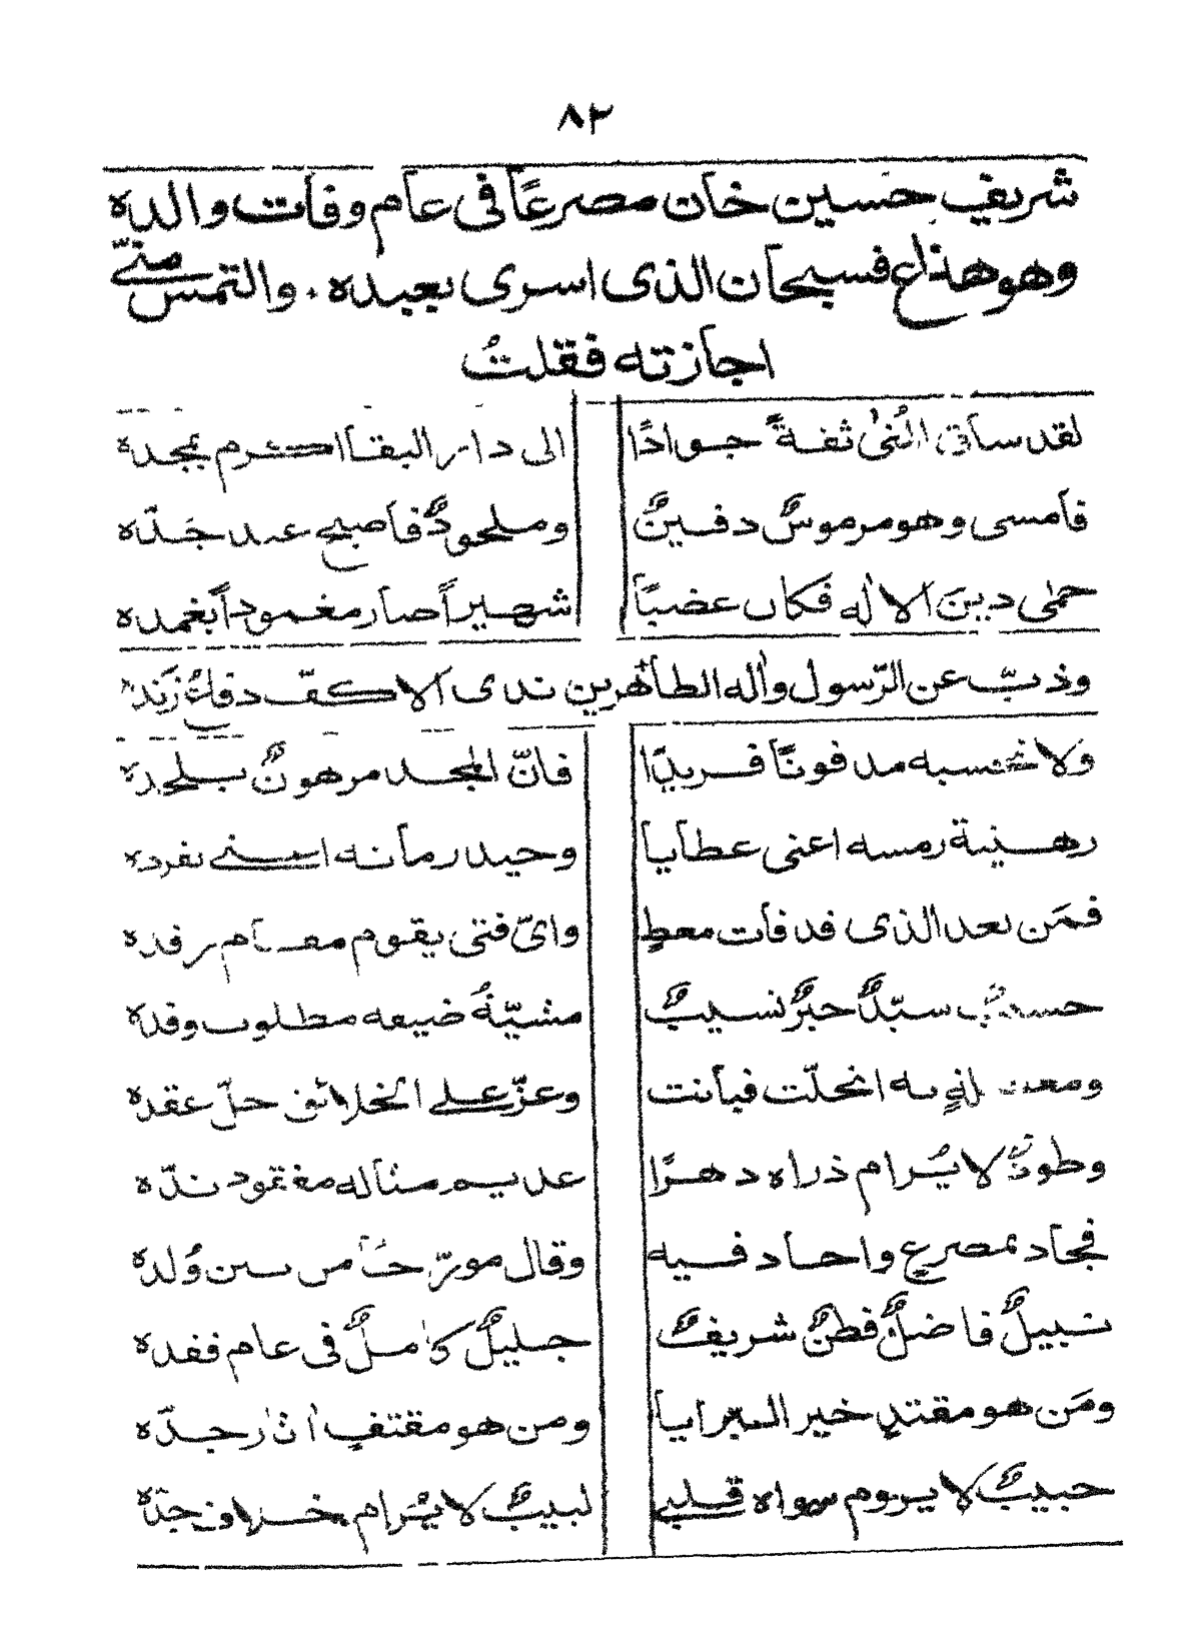 ٨٢
شريف حسين خان مصرعًا فى عام وفات والده
وهو هذا ع فسبحان الذى اسرى بعبده . والتمس منّي
اجازته فقلتُ
لقد ساق المُنىٰ ثقةً جوادًا الى دار البقا اكرم بمجده
فامسى وهو مرموسٌ دفينٌ وملحودٌ فاصبح عند جَدّه
حمٰى دينَ الالٰه فكان عضبًا شهيراً صار مغموداً بغمده
وذبّ عن الرّسول واٰله الطاهرين ندى الاكفّ دفاعُ زَنده
ولا تحسبه مدفونًا فريدًا فانّ المجد مرهونٌ بلحده
رهينة رمسه اعنى عطايا وحيد زمانه اسنى بفرده
فمَن بعد الذى قد فات معطٍ واىّ فتى يقوم مقام رفده
حسيبٌ سيّدٌ حبرٌ نسيبٌ مشيّةُ ضيعه مطلوب وفده
به انحلّت فبانت وعزّ على الخلائق حلّ عقده
وطودٌ لا يُرام ذراه دهرًا عديم مثاله مفقود ندّه
فجاد بمصرعٍ واجاد فيه وقال مورّخًا من سن وُلده
نبيلٌ فاضلٌ فطنٌ شريفٌ جليلٌ كاملٌ فى عام فقده
ومَن هو مقتدٍ خير البرايا ومن هو مقتفٍ اٰثار جدّه
حبيبٌ لا يروم سواه قلبي لبيبٌ لا يُرام خلاف جدّه